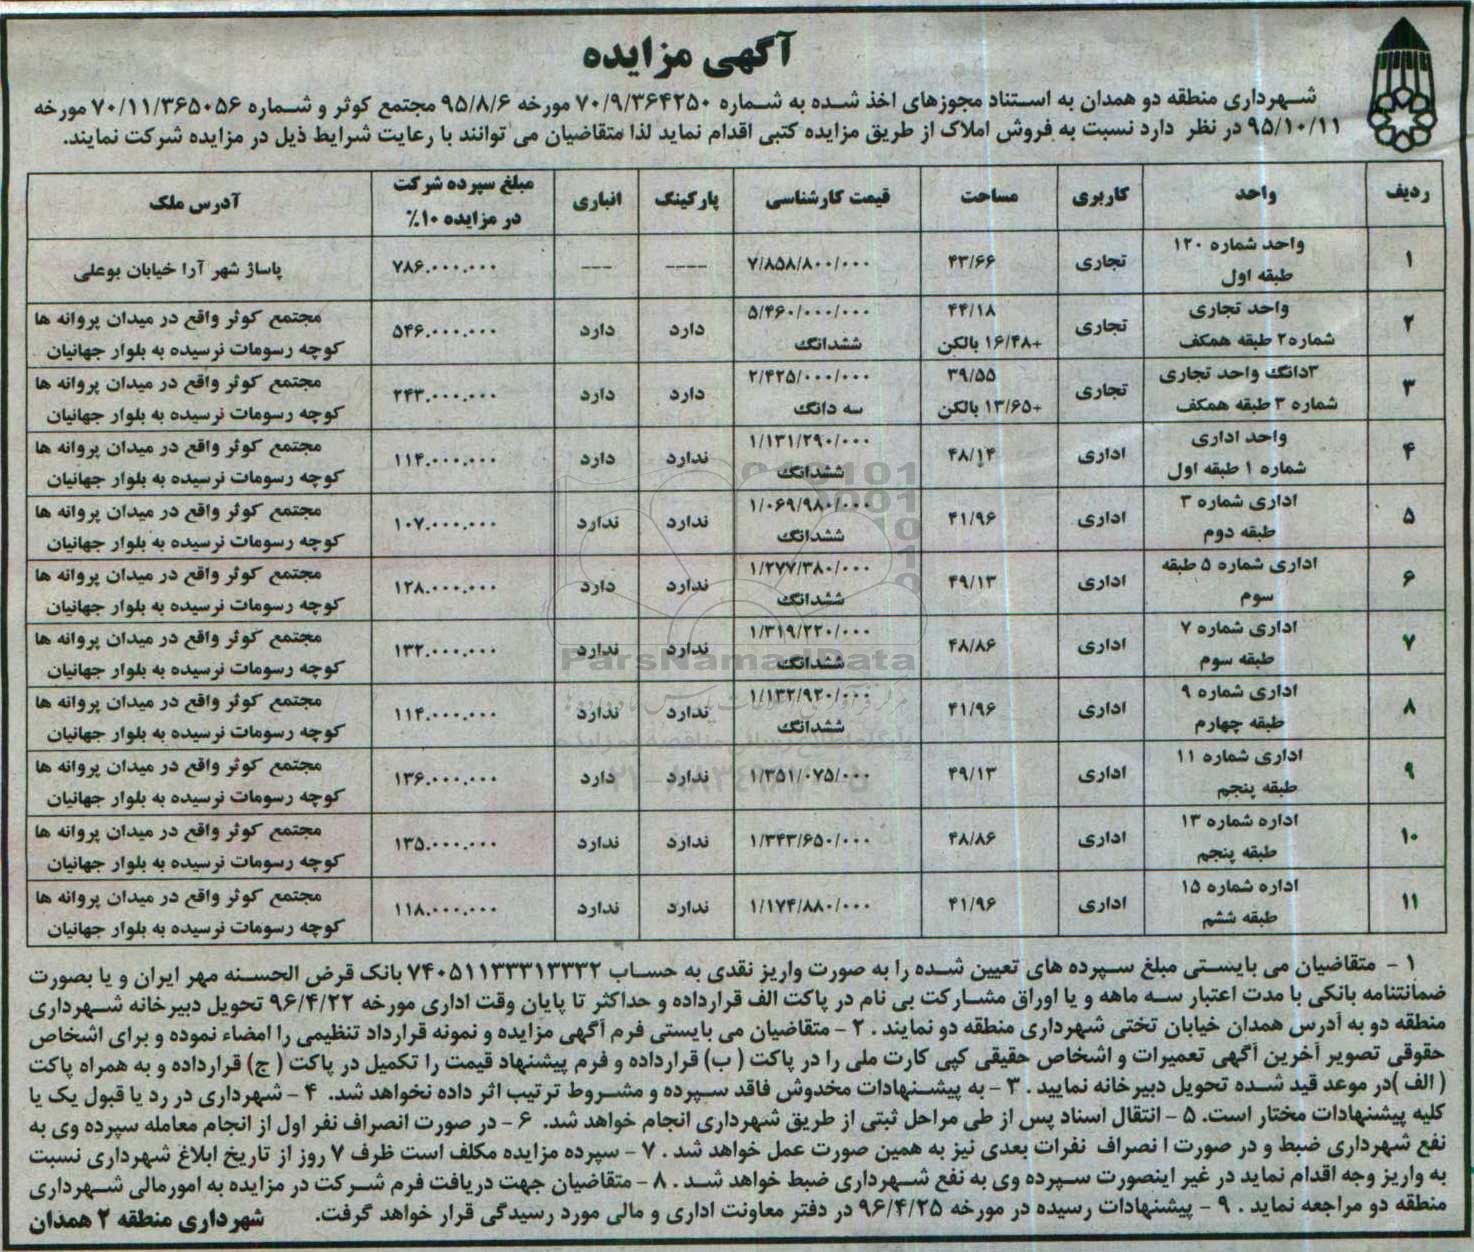 آگهی مزایده
شهرداری منطقه دو همدان به استناد مجوزهای اخذ شده به شماره ۷۰/۹/۳۶۴۲۵۰ مورخه ۹۵/۸/۶ مجتمع کوثر و شماره ۷۰/۱۱/۳۶۵۰۵۶ مورخه
۹۵/۱۰/۱۱ در نظر دارد نسبت به فروش املاک از طریق مزایده کتبی اقدام نماید لذا متقاضیان می توانند با رعایت شرایط ذیل در مزایده شرکت نمایند.
ردیف واحد کاربری مساحت قیمت کارشناسی پارکینگ انباری مبلغ سپرده شرکت در مزایده ۱۰% آدرس ملک
۱ واحد شماره ۱۲۰ طبقه اول تجاری ۴۳/۶۶ ۷/۸۵۸/۸۰۰/۰۰۰ ---- --- ۷۸۶.۰۰۰.۰۰۰ پاساژ شهر آرا خیابان بوعلی
۲ واحد تجاری شماره۲ طبقه همکف تجاری ۴۴/۱۸ +۱۶/۴۸ بالکن ۵/۴۶۰/۰۰۰/۰۰۰ ششدانگ دارد دارد ۵۴۶.۰۰۰.۰۰۰ مجتمع کوثر واقع در میدان پروانه ها کوچه رسومات نرسیده به بلوار جهانیان
۳ ۳دانگ واحد تجاری شماره ۳ طبقه همکف تجاری ۳۹/۵۵ +۱۳/۶۵ بالکن ۲/۴۲۵/۰۰۰/۰۰۰ سه دانگ دارد دارد ۲۴۳.۰۰۰.۰۰۰ مجتمع کوثر واقع در میدان پروانه ها کوچه رسومات نرسیده به بلوار جهانیان
۴ واحد اداری شماره ۱ طبقه اول اداری ۴۸/۱۴ ۱/۱۳۱/۲۹۰/۰۰۰ ششدانگ ندارد دارد ۱۱۴.۰۰۰.۰۰۰ مجتمع کوثر واقع در میدان پروانه ها کوچه رسومات نرسیده به بلوار جهانیان
۵ اداری شماره ۳ طبقه دوم اداری ۴۱/۹۶ ۱/۰۶۹/۹۸۰/۰۰۰ ششدانگ ندارد ندارد ۱۰۷.۰۰۰.۰۰۰ مجتمع کوثر واقع در میدان پروانه ها کوچه رسومات نرسیده به بلوار جهانیان
۶ اداری شماره ۵ طبقه سوم اداری ۴۹/۱۳ ۱/۲۷۷/۳۸۰/۰۰۰ ششدانگ ندارد دارد ۱۲۸.۰۰۰.۰۰۰ مجتمع کوثر واقع در میدان پروانه ها کوچه رسومات نرسیده به بلوار جهانیان
۷ اداری شماره ۷ طبقه سوم اداری ۴۸/۸۶ ۱/۳۱۹/۲۲۰/۰۰۰ ششدانگ ندارد ندارد ۱۳۲.۰۰۰.۰۰۰ مجتمع کوثر واقع در میدان پروانه ها کوچه رسومات نرسیده به بلوار جهانیان
۸ اداری شماره ۹ طبقه چهارم اداری ۴۱/۹۶ ۱/۱۳۲/۹۲۰/۰۰۰ ششدانگ ندارد ندارد ۱۱۴.۰۰۰.۰۰۰ مجتمع کوثر واقع در میدان پروانه ها کوچه رسومات نرسیده به بلوار جهانیان
۹ اداری شماره ۱۱ طبقه پنجم اداری ۴۹/۱۳ ۱/۳۵۱/۰۷۵/۰۰۰ ندارد دارد ۱۳۶.۰۰۰.۰۰۰ مجتمع کوثر واقع در میدان پروانه ها کوچه رسومات نرسیده به بلوار جهانیان
۱۰ اداره شماره ۱۳ طبقه پنجم اداری ۴۸/۸۶ ۱/۳۴۳/۶۵۰/۰۰۰ ندارد ندارد ۱۳۵.۰۰۰.۰۰۰ مجتمع کوثر واقع در میدان پروانه ها کوچه رسومات نرسیده به بلوار جهانیان
۱۱ اداره شماره ۱۵ طبقه ششم اداری ۴۱/۹۶ ۱/۱۷۴/۸۸۰/۰۰۰ ندارد ندارد ۱۱۸.۰۰۰.۰۰۰ مجتمع کوثر واقع در میدان پروانه ها کوچه رسومات نرسیده به بلوار جهانیان
ParsNamadData
۱ - متقاضیان می بایستی مبلغ سپرده های تعیین شده را به صورت واریز نقدی به حساب ۷۴۰۵۱۱۳۳۳۱۳۳۳۲ بانک قرض الحسنه مهر ایران و یا بصورت
ضمانتنامه بانکی با مدت اعتبار سه ماهه و یا اوراق مشارکت بی نام در پاکت الف قرارداده و حداکثر تا پایان وقت اداری مورخه ۹۶/۴/۲۲ تحویل دبیرخانه شهرداری
منطقه دو به آدرس همدان خیابان تختی شهرداری منطقه دو نمایند . ۲ - متقاضیان می بایستی فرم آگهی مزایده و نمونه قرارداد تنظیمی را امضاء نموده و برای اشخاص
حقوقی تصویر آخرین آگهی تعمیرات و اشخاص حقیقی کپی کارت ملی را در پاکت ( ب) قرارداده و فرم پیشنهاد قیمت را تکمیل در پاکت ( ج) قرارداده و به همراه پاکت
( الف )در موعد قید شده تحویل دبیرخانه نمایید . ۳ - به پیشنهادات مخدوش فاقد سپرده و مشروط ترتیب اثر داده نخواهد شد. ۴ - شهرداری در رد یا قبول یک یا
کلیه پیشنهادات مختار است. ۵ - انتقال اسناد پس از طی مراحل ثبتی از طریق شهرداری انجام خواهد شد. ۶ - در صورت انصراف نفر اول از انجام معامله سپرده وی به
نفع شهرداری ضبط و در صورت ا نصراف نفرات بعدی نیز به همین صورت عمل خواهد شد . ۷ - سپرده مزایده مکلف است ظرف ۷ روز از تاریخ ابلاغ شهرداری نسبت
به واریز وجه اقدام نماید در غیر اینصورت سپرده وی به نفع شهرداری ضبط خواهد شد . ۸ - متقاضیان جهت دریافت فرم شرکت در مزایده به امورمالی شهرداری
منطقه دو مراجعه نماید . ۹ - پیشنهادات رسیده در مورخه ۹۶/۴/۲۵ در دفتر معاونت اداری و مالی مورد رسیدگی قرار خواهد گرفت. شهرداری منطقه ۲ همدان